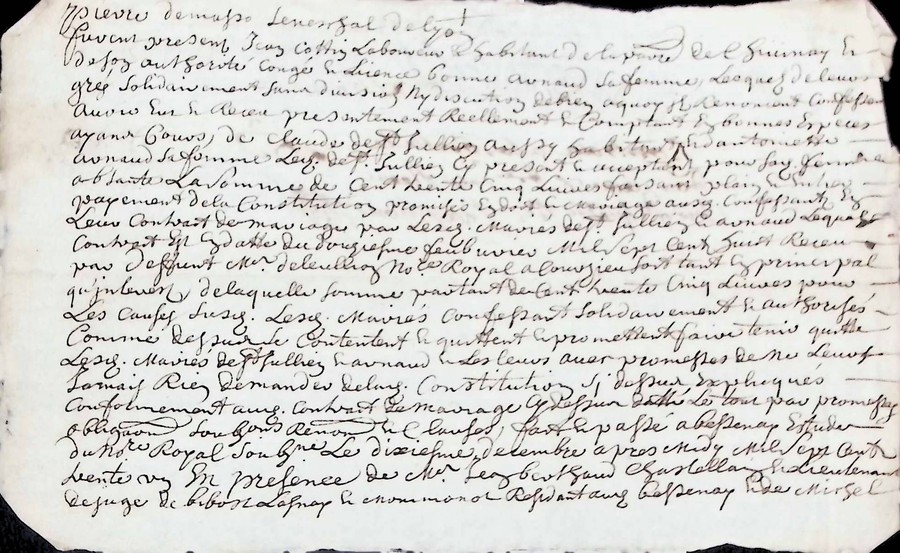 pierre demasso seneschal de lyon
furent present Jean Cottin Laboureur & habitant de la parre de Chivinay Et
de son authorité Congé & Licence bonne arnaud sa femme, Lesquels de leurs
grés solidairement sans division Ny discution de bien a quoy ils Renoncent Confessent
avoir Eus & Receu presentement Reellement & Comptant En bonnes Especes
ayant Cours, de Claude de st Jullien aussy habitant
arnaud sa femme Led. de st Jullien Cy present & acceptant pour Lad. femme
absante La somme de Cent trente Cinq Livres faisant plain & Entier
payement de la Constitution promise En dost & Mariage ausd. Confessants En
Leur Contrait de mariage par Lesd. Mariés de st Jullien & arnaud Lequel
Contrait Est En datte du douziesme feubvrier Mil sept Cent huict Receu
par deffunt Mr. deleullion Nore Royal a Courzieu soit tant En principal
qu'interest, de laquelle somme partant de Cent trente Cinq Livres pour
Les Causes susd. Lesd. Mariés Confessant solidairement & authorisés
Comme dessus se Contentent & quittent & promettent faire tenir quitte
Lesd. Mariés de st Jullien & arnaud & Les leurs avec promesses de Ne Leurs
Jamais Rien demander de lad. Constitution sy dessus Expliqués
Conformement aud. Contrait de Mariage Cy dessus datté Le tout par promesses
obligaons soubmons Renons & Clauses, fait & passé a bessenay Estude
du Nore Royal soubne Le dixiesme decembre apres Midy Mil sept Cent
trente un En presence de Mr. Jean berthaud Chastellain & Lieutenant
de juge de bibost Lasnay & Montmenot Residant aud. bessenay & de Michel